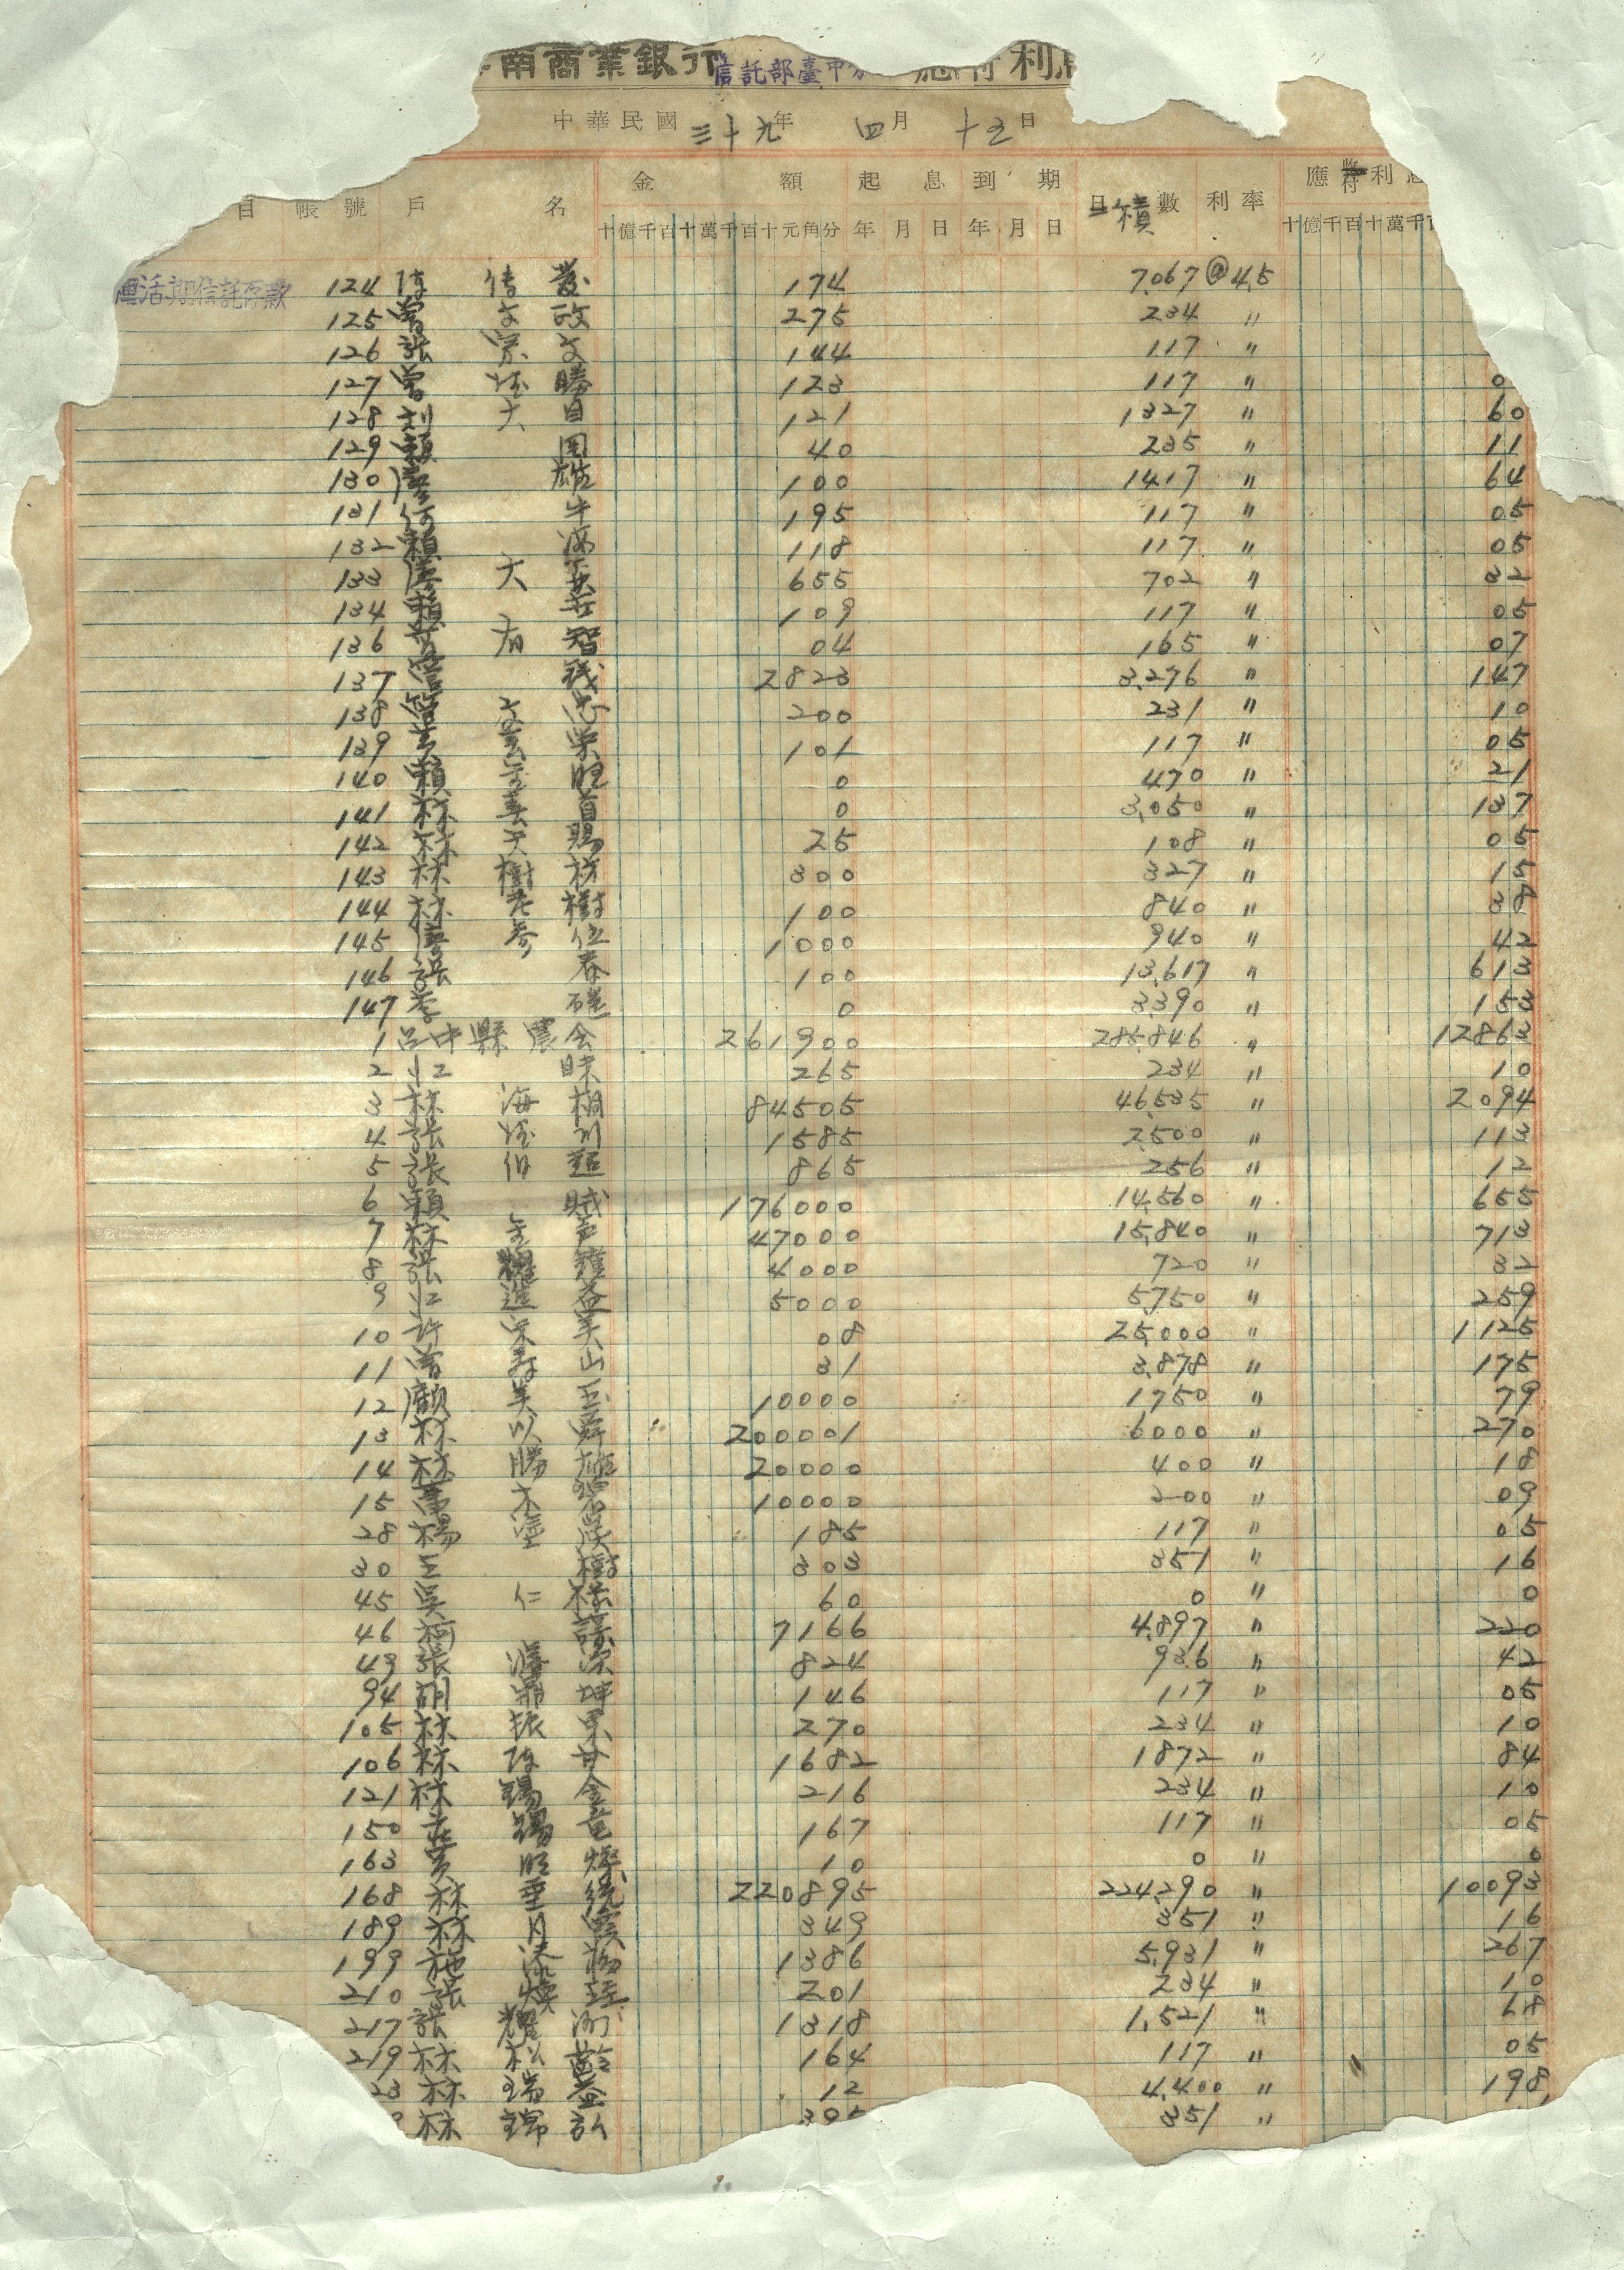 南商業銀行 信託部臺中 應付利
中華民國 三十九年 四月 十五日
目 帳號 戶 名 金 額 起息到期 積數 利率 應付利息
十億千百十萬千百十元角分 年月日 年月日 十億千百十萬千百
活期信託存款 124 陳 174 7,067 @ 4.5
125 曾 文 政 275 234 〃
126 張 文 144 117 〃
127 曾 勝 123 117 〃 0
128 劉 大 目 121 1327 〃 60
129 賴 40 235 〃 11
130 廖 雄 100 1417 〃 64
131 何 牛 195 117 〃 05
132 賴 118 117 〃 05
133 廖 大 英 655 702 〃 32
134 賴 109 117 〃 05
136 黃 有 智 04 165 〃 07
137 2823 3,276 〃 147
138 文 忠 200 231 〃 10
139 黃 榮 101 117 〃 05
140 賴 旺 0 470 〃 21
141 林 0 3,050 〃 137
142 林 天 賜 25 108 〃 05
143 林 樹 300 327 〃 15
144 林 樹 100 840 〃 38
145 廖 1000 940 〃 42
146 張 春 100 13,617 〃 613
147 李 0 3390 〃 153
1 台中縣農会 261900 285,846 〃 12863
2 江 265 234 〃 10
3 林 海 84505 46,535 〃 2094
4 張 川 1585 2,500 〃 113
5 張 伯 超 865 256 〃 12
6 賴 賊 176000 14,560 〃 655
7 林 47000 15,840 〃 713
8 張 4000 720 〃 32
9 江 進 益 5000 5,750 〃 259
10 許 美 08 25,000 〃 1125
11 曾 山 31 3,878 〃 175
12 顧 美 玉 10000 1,750 〃 79
13 林 以 舜 200001 6000 〃 270
14 林 勝 雄 20000 400 〃 18
15 10000 200 〃 09
28 楊 185 117 〃 05
30 王 樹 303 351 〃 16
45 吳 仁 60 0 〃 0
46 7166 4,897 〃 220
49 張 824 936 〃 42
94 胡 鼎 坤 146 117 〃 05
105 林 振 270 234 〃 10
106 林 陳 甘 1682 1872 〃 84
121 林 錫 金 216 234 〃 10
150 莊 錫 167 117 〃 05
163 黃 旺 燦 10 0 〃 0
168 林 垂 統 220895 224,290 〃 10093
189 林 月 霞 349 351 〃 16
199 施 添 1386 5,931 〃 267
210 張 煥 珪 201 234 〃 10
217 張 耀 1318 1,521 〃 68
219 林 松 齡 164 117 〃 05
23 林 瑞 益 12 4,400 〃 198
林 錦 弘 395 351 〃